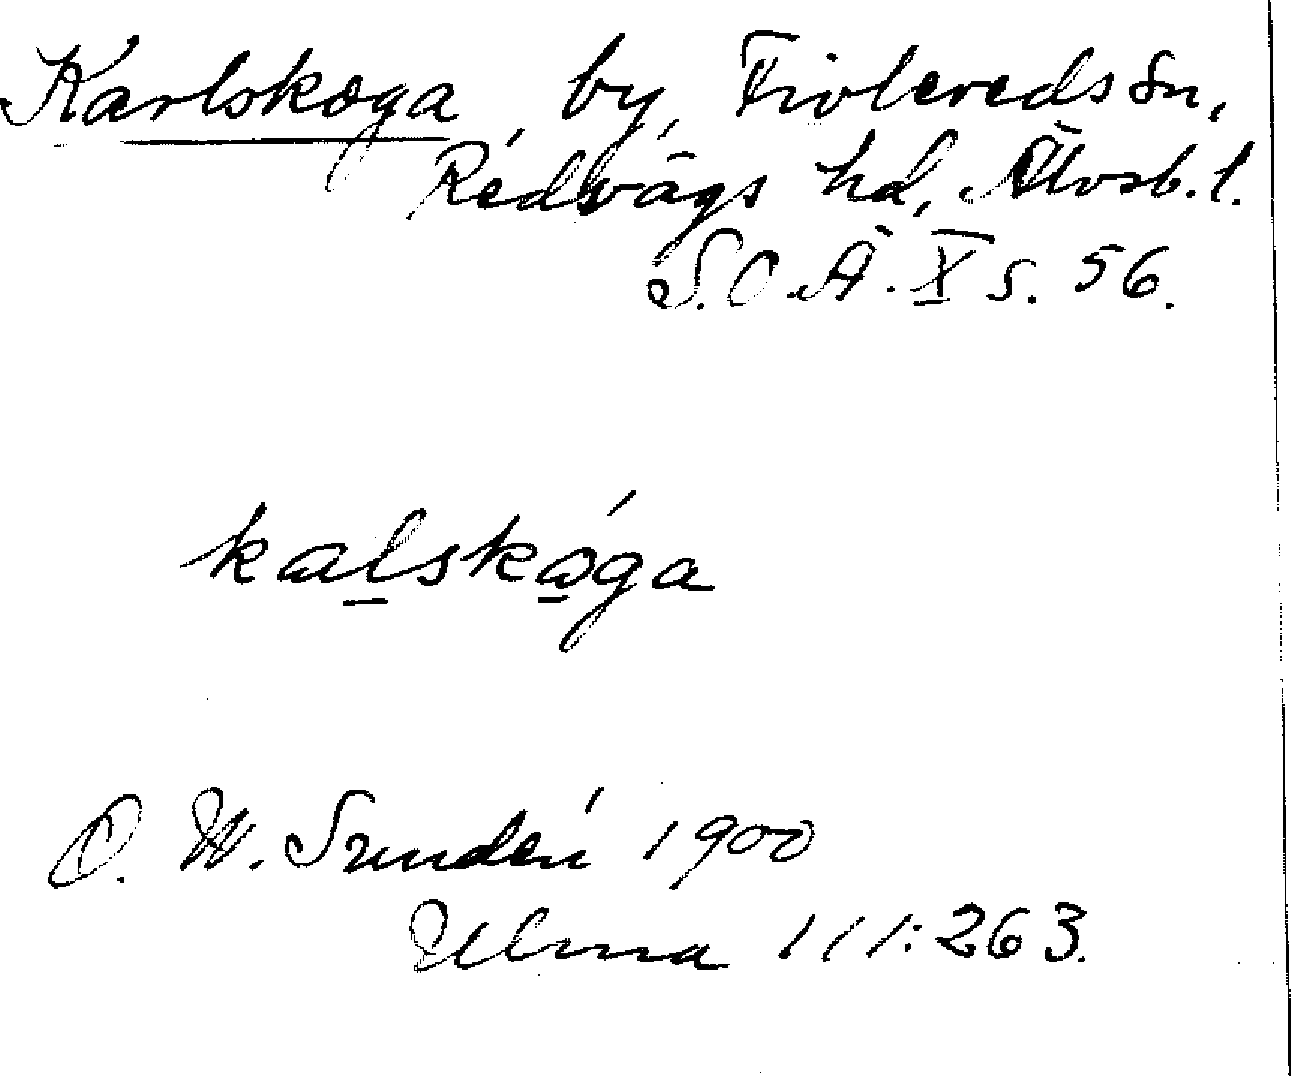 Karlskoga, by, Fivleredssn,
Redvägs hd, Älvsb. l.
S. O. Ä. X s. 56.
kalskóga
O. W. Sundén 1900
Ulma 111:263.